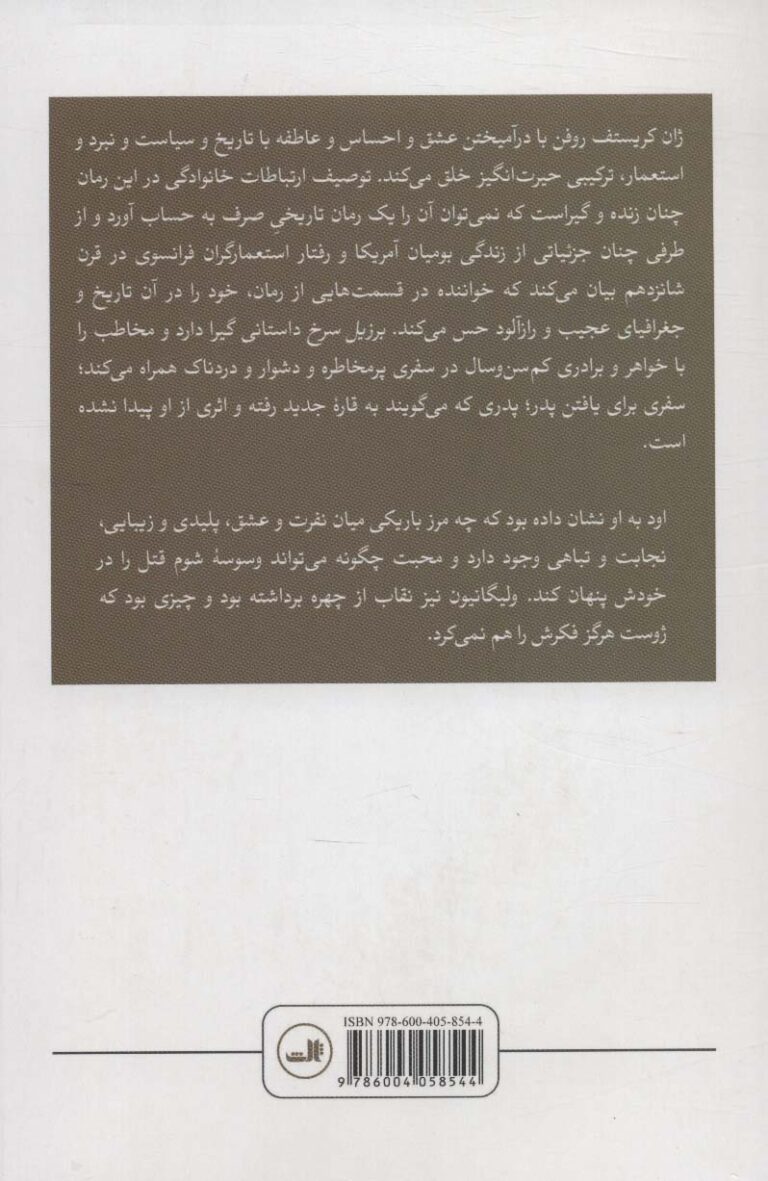 ژان کریستف روفن با درآمیختن عشق و احساس و عاطفه با تاریخ و سیاست و نبرد و
استعمار، ترکیبی حیرت‌انگیز خلق می‌کند. توصیف ارتباطات خانوادگی در این رمان
چنان زنده و گیراست که نمی‌توان آن را یک رمان تاریخیِ صرف به حساب آورد و از
طرفی چنان جزئیاتی از زندگی بومیان آمریکا و رفتار استعمارگران فرانسوی در قرن
شانزدهم بیان می‌کند که خواننده در قسمت‌هایی از رمان، خود را در آن تاریخ و
جغرافیای عجیب و رازآلود حس می‌کند. برزیل سرخ داستانی گیرا دارد و مخاطب را
با خواهر و برادری کم‌سن‌وسال در سفری پرمخاطره و دشوار و دردناک همراه می‌کند؛
سفری برای یافتن پدر؛ پدری که می‌گویند به قارهٔ جدید رفته و اثری از او پیدا نشده
است.
اود به او نشان داده بود که چه مرز باریکی میان نفرت و عشق، پلیدی و زیبایی،
نجابت و تباهی وجود دارد و محبت چگونه می‌تواند وسوسهٔ شوم قتل را در
خودش پنهان کند. ولیگانیون نیز نقاب از چهره برداشته بود و چیزی بود که
ژوست هرگز فکرش را هم نمی‌کرد.
ISBN 978-600-405-854-4
ثالث
9 786004 058544